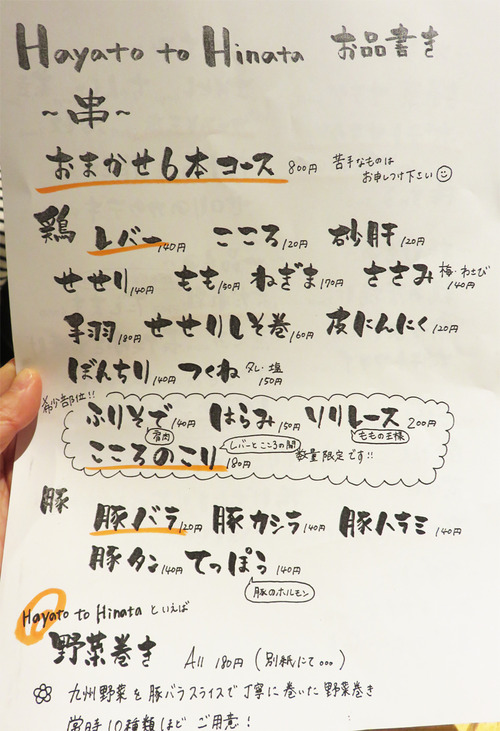 Hayato to Hinata お品書き
~串~
おまかせ6本コース 800円 苦手なものは
お申しつけ下さい
鶏 レバー 140円 こころ 120円 砂肝 120円
せせり 140円 もも 150円 ねぎま 170円 ささみ 梅・わさび 140円
手羽 180円 せせりしそ巻 160円 皮にんにく 120円
ぼんちり 140円 つくね タレ・塩 150円
希少部位!!
ふりそで 140円 はらみ 150円 ソリレース 200円
肩肉 ももの王様
こころのこり 180円 レバーとこころの間 数量限定です!!
豚 豚バラ 120円 豚カシラ 140円 豚ハラミ 140円
豚タン 140円 てっぽう 140円
豚のホルモン
Hayato to Hinata といえば
野菜巻き All 180円 (別紙にて...)
九州野菜を豚バラスライスで丁寧に巻いた野菜巻き
常時10種類ほど ご用意!